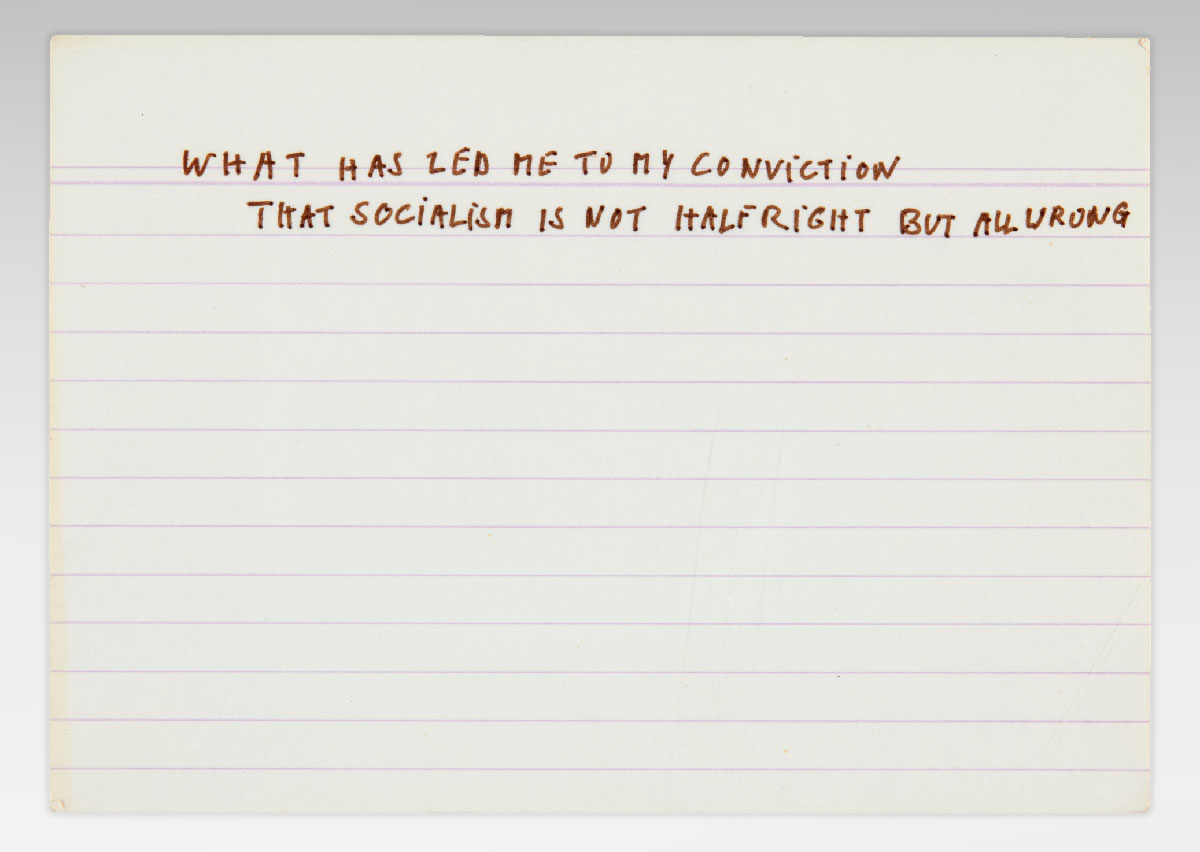 WHAT HAS LED ME TO MY CONVICTION
THAT SOCIALISM IS NOT HALF RIGHT BUT ALL WRONG